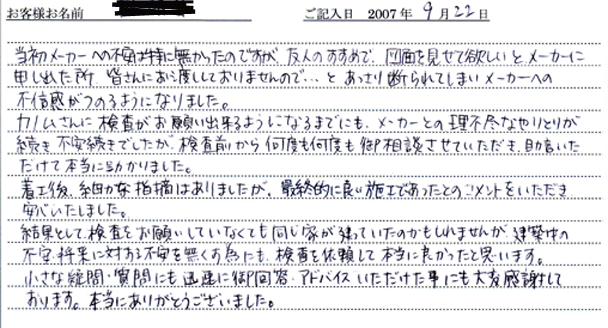 お客様お名前 ご記入日 2007年 9月22日
当初メーカーへの不安は特に無かったのですが、友人のすすめで、図面を見せて欲しいとメーカーに
申し出た所、皆さんにお渡ししておりませんので…とあっさり断られてしまいメーカーへの
不信感がつのるようになりました。
カノムさんに検査がお願い出来るようになるまでにも、メーカーとの理不尽なやりとりが
続き不安続きでしたが、検査前から何度も何度も御相談させていただき、助言いた
だけて本当に助かりました。
着工後、細かな指摘はありましたが、最終的に良い施工であったとのコメントをいただき
安心いたしました。
結果として検査をお願いしていなくても同じ家が建っていたのかもしれませんが、建築中の
不安、将来に対する不安を無くす為にも、検査を依頼して本当に良かったと思います。
小さな疑問・質問にも迅速に御回答・アドバイスいただけた事にも大変感謝して
おります。本当にありがとうございました。